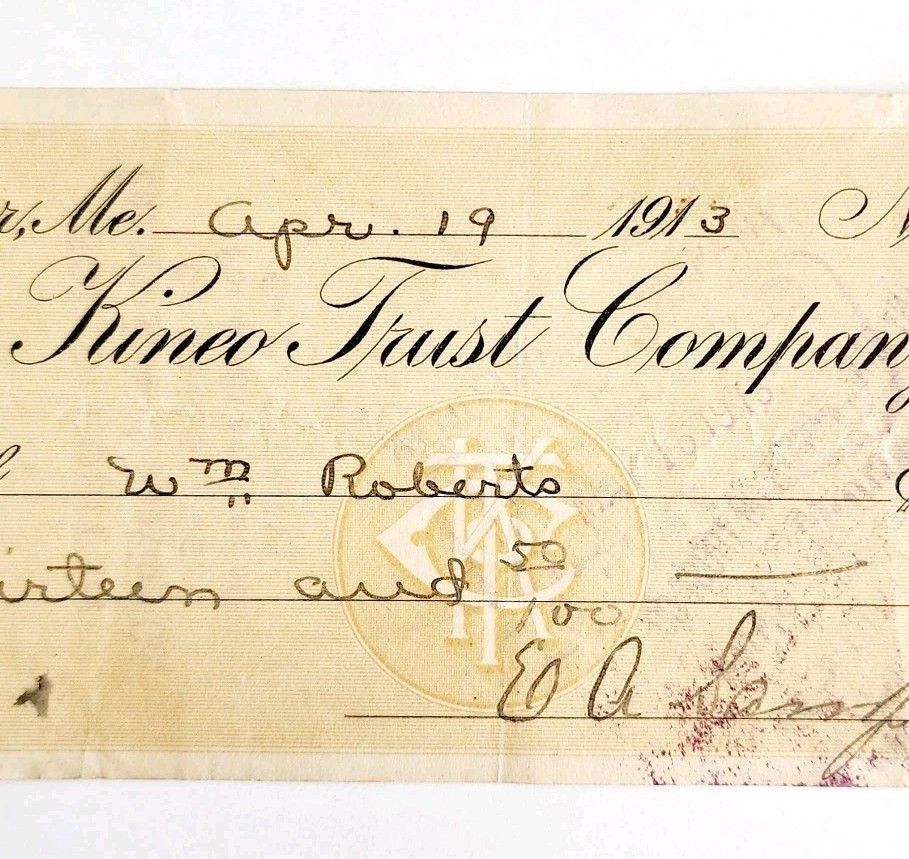 r, Me. Apr. 19 1913 N
Kineo Trust Company
Wm Roberts
rteen and 50/100
E A